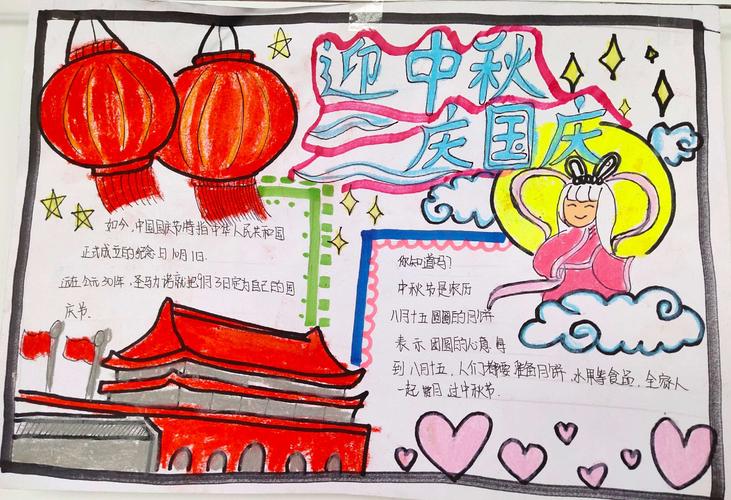 迎中秋
庆国庆
如今,中国国庆节特指中华人民共和国
正式成立的纪念日10月1日.
远在公元301年,圣马力诺就把9月3日定为自己的国
庆节.
你知道吗?
中秋节是农历
八月十五圆圆的月饼
表示团圆的心意.每
到八月十五,人们都要准备月饼,水果等食品,全家人
一起赏月过中秋节.